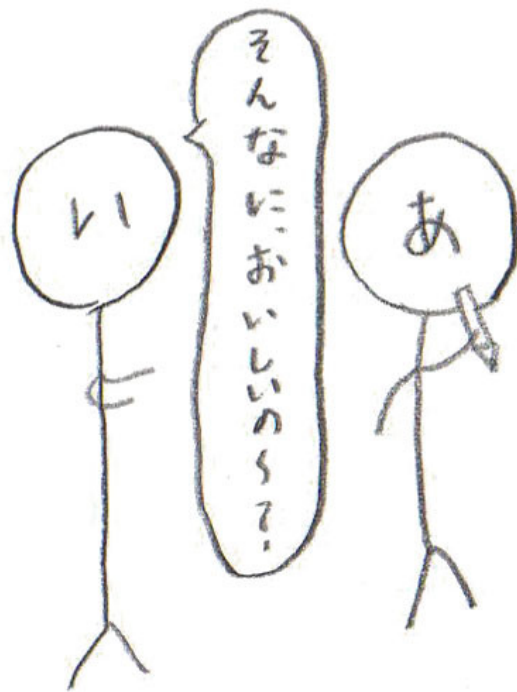 あ
そんなに、おいしいの〜?
い